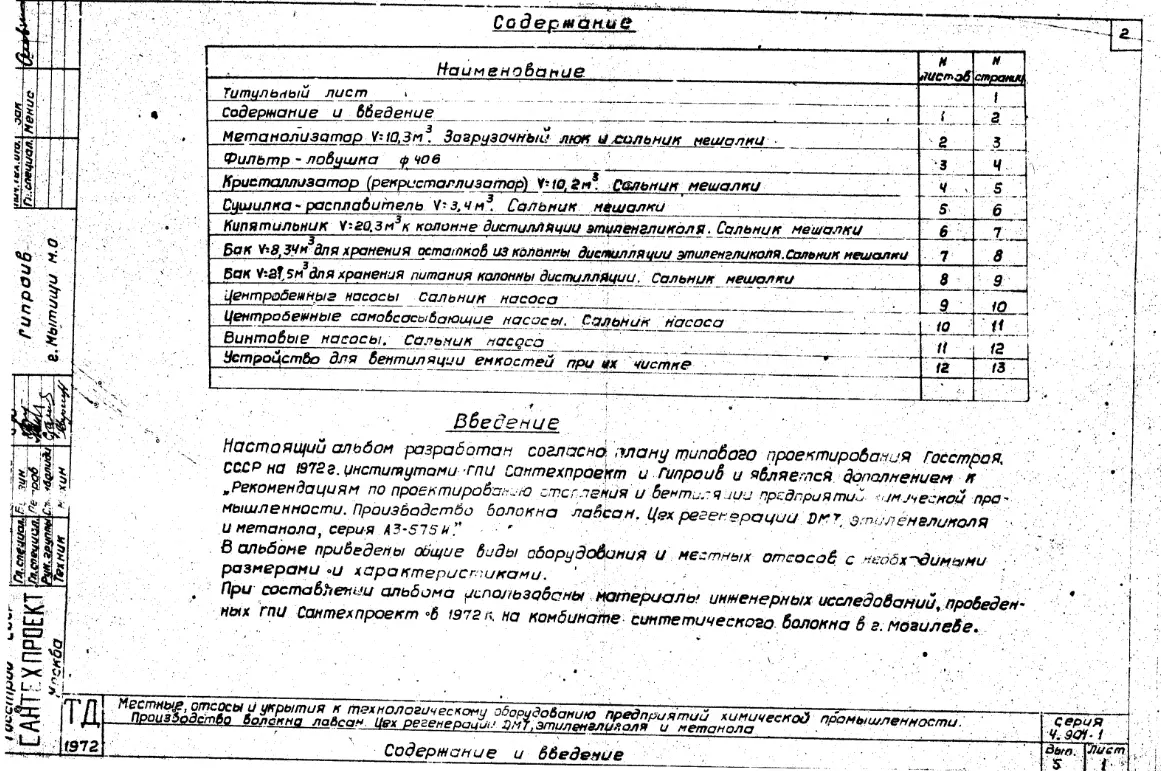 Содержание
2
Наименование
N листов
N страниц
Титульный лист 1
Содержание и введение 1 2
Метанолизатор V=10,3м³. Загрузочный люк и сальник мешалки 2 3
Фильтр-ловушка ф 406 3 4
Кристаллизатор (рекристаллизатор) V=10,2м³. Сальник мешалки 4 5
Сушилка-расплавитель V=3,4м³. Сальник мешалки 5 6
Кипятильник V=20,3м³ к колонне дистилляции этиленгликоля. Сальник мешалки 6 7
Бак V=8,34м³ для хранения остатков из колонны дистилляции этиленгликоля. Сальник мешалки 7 8
Бак V=21,5м³ для хранения питания колонны дистилляции. Сальник мешалки 8 9
Центробежные насосы Сальник насоса 9 10
Центробежные самовсасывающие насосы. Сальник насоса 10 11
Винтовые насосы. Сальник насоса 11 12
Устройство для вентиляции емкостей при их чистке 12 13
Введение
Настоящий альбом разработан согласно плану типового проектирования Госстроя,
СССР на 1972г. институтами ГПИ Сантехпроект и Гипроив и является дополнением к
„Рекомендациям по проектированию отопления и вентиляции предприятий химической про-
мышленности. Производство волокна лавсан. Цех регенерации ДМТ, этиленгликоля
и метанола, серия А3-575 и".
В альбоме приведены общие виды оборудования и местных отсосов с необходимыми
размерами и характеристиками.
При составлении альбома использованы материалы инженерных исследований, проведен-
ных ГПИ Сантехпроект в 1972г. на комбинате синтетического волокна в г. Могилеве.
Гипроив
г. Мытищи М.О
Гл. специал. Менис
Гл. специал.
Гл. специал.
Рук. группы
Техник
САНТЕХПРОЕКТ
Москва
ТД
1972
Местные отсосы и укрытия к технологическому оборудованию предприятий химической промышленности.
Производство волокна лавсан. Цех регенерации ДМТ, этиленгликоля и метанола
Содержание и введение
Серия
4.904-1
Вып. 5
Лист 1